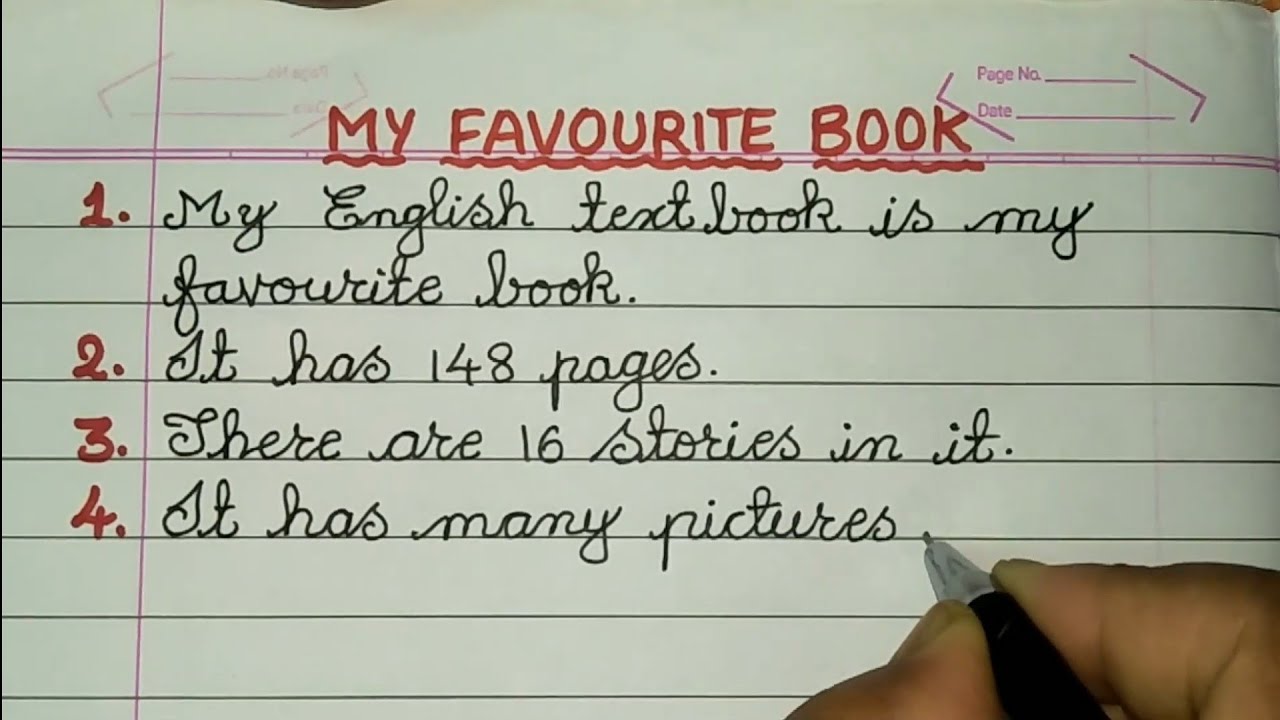 Page No.
Date
MY FAVOURITE BOOK
1. My English textbook is my
favourite book.
2. It has 148 pages.
3. There are 16 stories in it.
4. It has many pictures